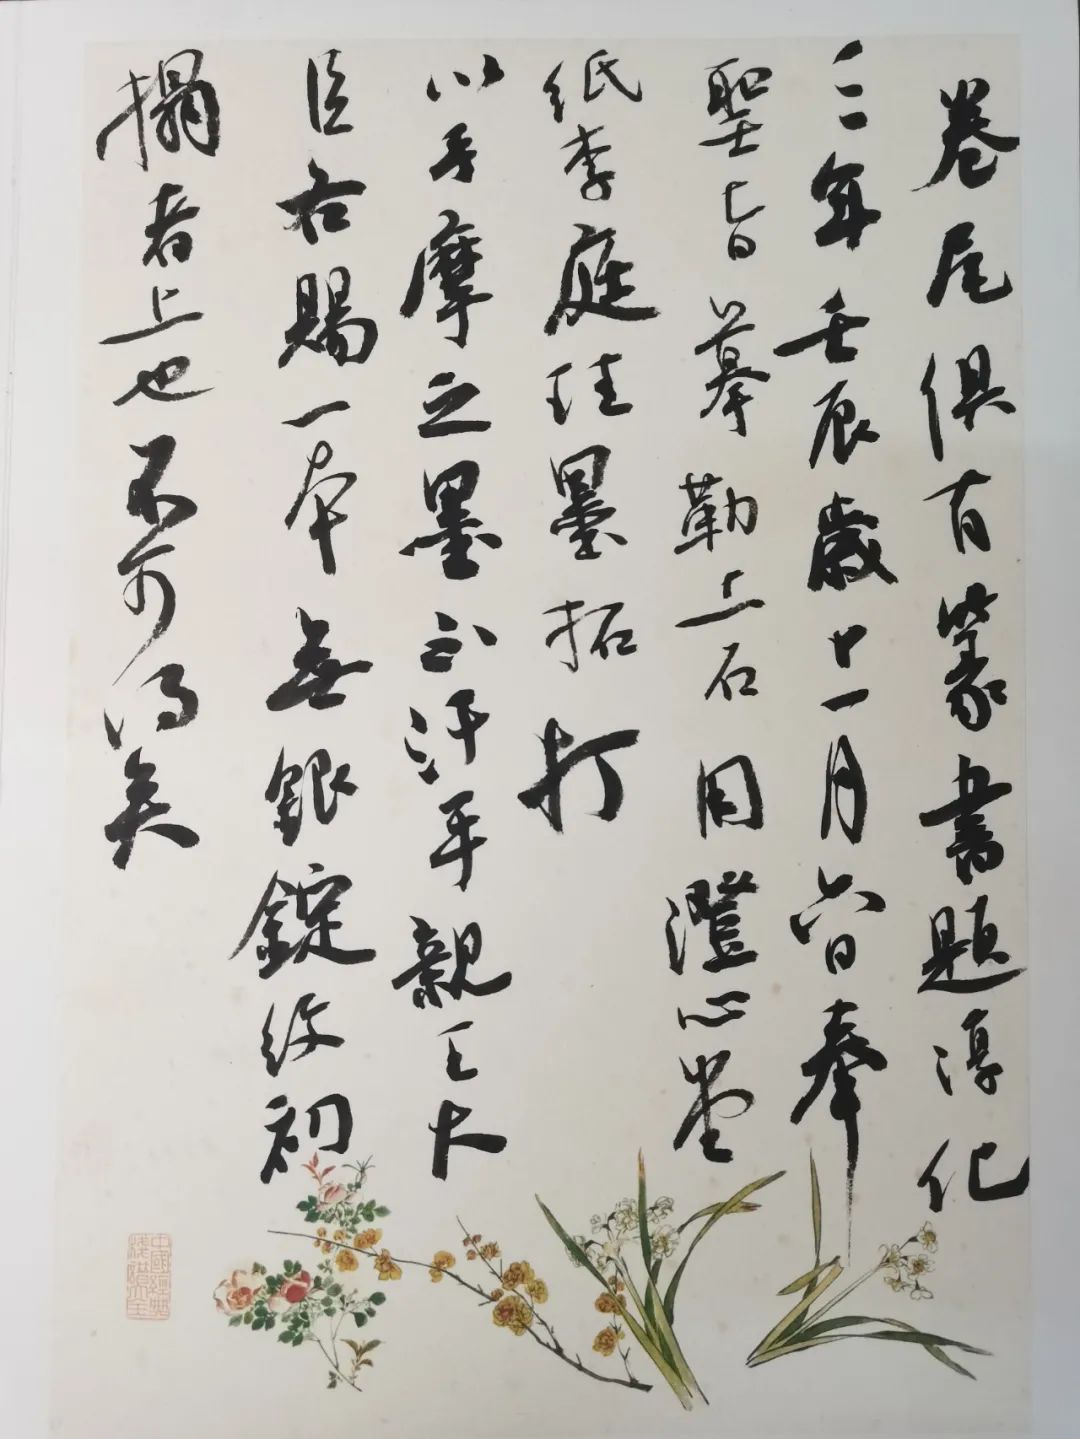 卷尾俱有篆書題淳化
三年壬辰歲十一月六日奉
聖旨摹勒上石用澄心堂
紙李庭珪墨拓打
以手摩之墨不汙手親王大
臣各賜一本無銀錠紋初
搨者上也不可得矣